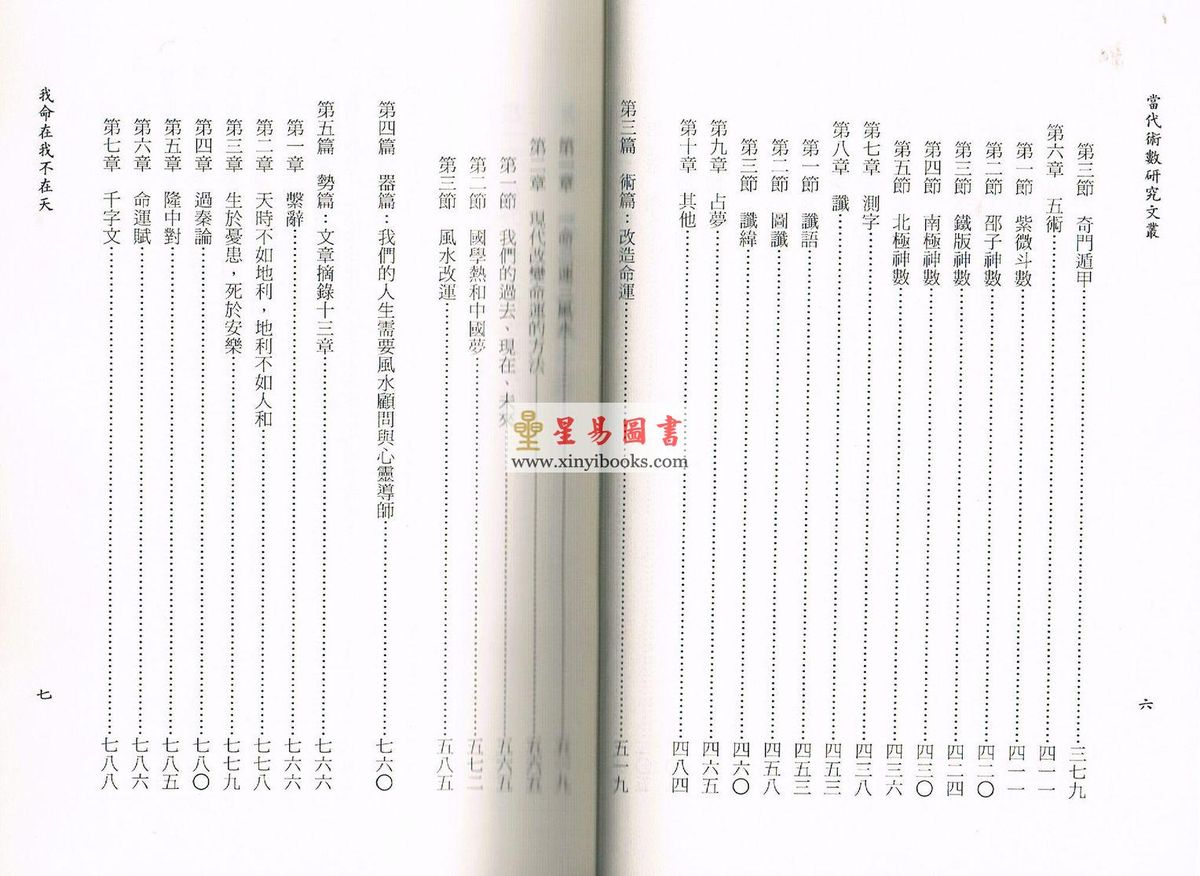 當代術數研究文叢
第三節 奇門遁甲……三七九
第六章 五術……四一一
第一節 紫微斗數……四一一
第二節 邵子神數……四二〇
第三節 鐵版神數……四二四
第四節 南極神數……四三〇
第五節 北極神數……四三六
第七章 測字……四三八
第八章 讖……四五三
第一節 讖語……四五三
第二節 圖讖……四五八
第三節 讖緯……四六〇
第九章 占夢……四六五
第十章 其他……四八四
六
第三篇 術篇：改造命運……五一九
第二章 現代改變命運的方法……五六五
第一節 我們的過去、現在、未來……五六九
第二節 國學熱和中國夢……五七二
第三節 風水改運……五八五
第四篇 器篇：我們的人生需要風水顧問與心靈導師……七六〇
第五篇 勢篇：文章摘錄十三章……七六六
第一章 繫辭……七六六
第二章 天時不如地利，地利不如人和……七七八
第三章 生於憂患，死於安樂……七七九
第四章 過秦論……七八〇
第五章 隆中對……七八五
第六章 命運賦……七八六
第七章 千字文……七八八
我命在我不在天
七
星易圖書
www.xinyibooks.com